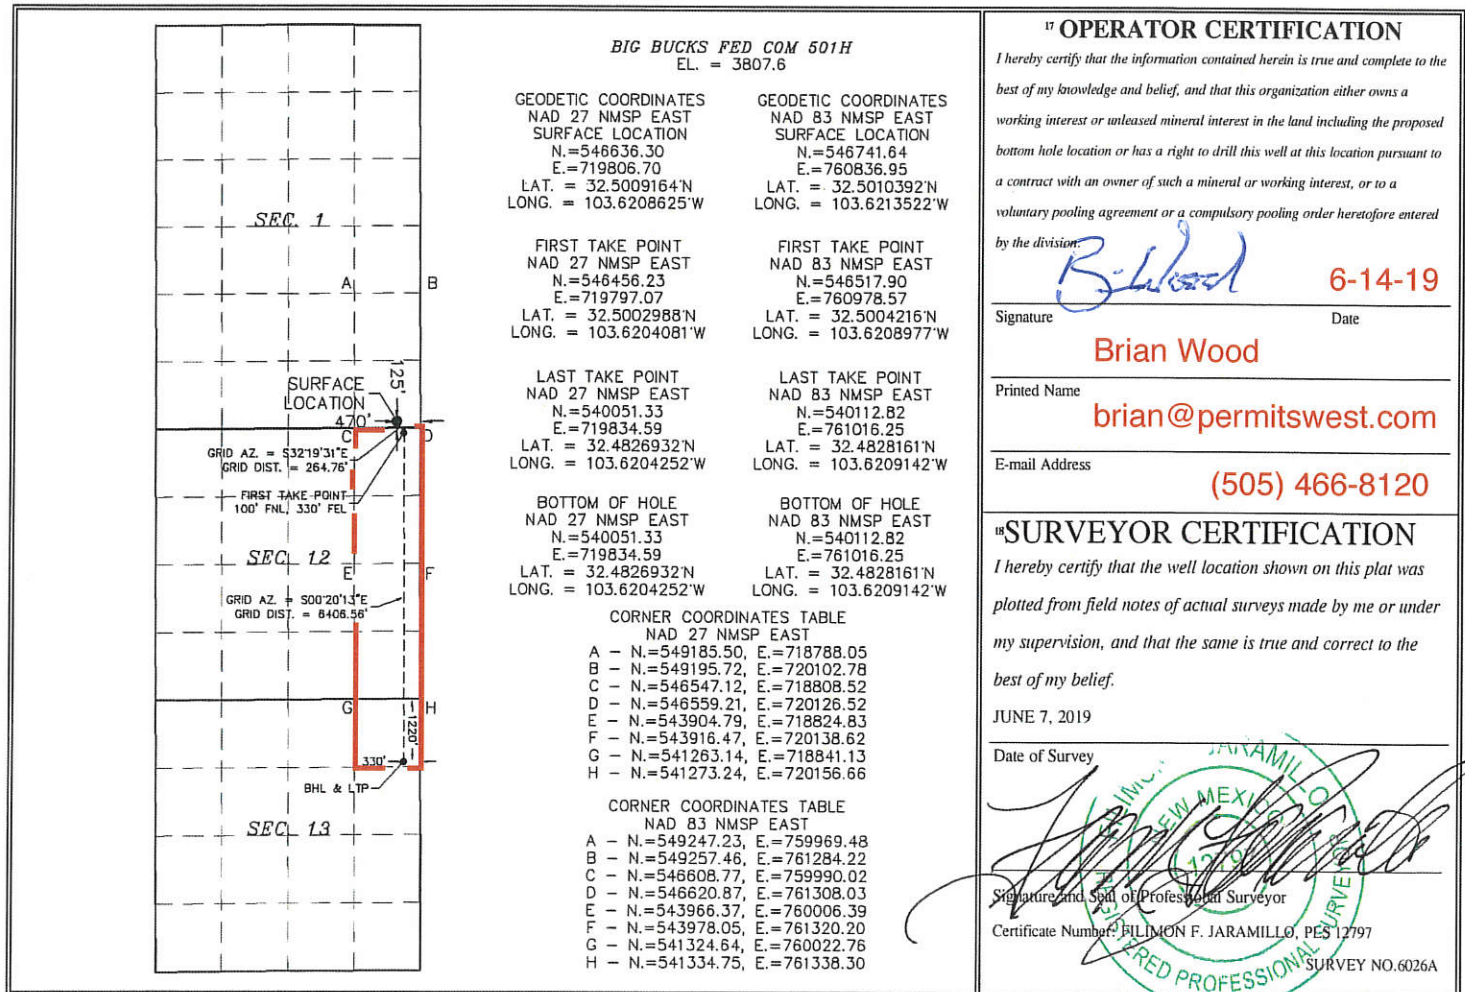 SEC. 1
A
B
125'
SURFACE
LOCATION
470'
C
D
GRID AZ. = S32°19'31"E
GRID DIST. = 264.76'
FIRST TAKE POINT
100' FNL, 330' FEL
SEC. 12
E
F
GRID AZ. = S00°20'13"E
GRID DIST. = 6406.56'
G
H
1220'
330'
BHL & LTP
SEC. 13
BIG BUCKS FED COM 501H
EL. = 3807.6
GEODETIC COORDINATES
NAD 27 NMSP EAST
SURFACE LOCATION
N.=546636.30
E.=719806.70
LAT. = 32.5009164°N
LONG. = 103.6208625°W
GEODETIC COORDINATES
NAD 83 NMSP EAST
SURFACE LOCATION
N.=546741.64
E.=760836.95
LAT. = 32.5010392°N
LONG. = 103.6213522°W
FIRST TAKE POINT
NAD 27 NMSP EAST
N.=546456.23
E.=719797.07
LAT. = 32.5002988°N
LONG. = 103.6204081°W
FIRST TAKE POINT
NAD 83 NMSP EAST
N.=546517.90
E.=760978.57
LAT. = 32.5004216°N
LONG. = 103.6208977°W
LAST TAKE POINT
NAD 27 NMSP EAST
N.=540051.33
E.=719834.59
LAT. = 32.4826932°N
LONG. = 103.6204252°W
LAST TAKE POINT
NAD 83 NMSP EAST
N.=540112.82
E.=761016.25
LAT. = 32.4828161°N
LONG. = 103.6209142°W
BOTTOM OF HOLE
NAD 27 NMSP EAST
N.=540051.33
E.=719834.59
LAT. = 32.4826932°N
LONG. = 103.6204252°W
BOTTOM OF HOLE
NAD 83 NMSP EAST
N.=540112.82
E.=761016.25
LAT. = 32.4828161°N
LONG. = 103.6209142°W
CORNER COORDINATES TABLE
NAD 27 NMSP EAST
A - N.=549185.50, E.=718788.05
B - N.=549195.72, E.=720102.78
C - N.=546547.12, E.=718808.52
D - N.=546559.21, E.=720126.52
E - N.=543904.79, E.=718824.83
F - N.=543916.47, E.=720138.62
G - N.=541263.14, E.=718841.13
H - N.=541273.24, E.=720156.66
CORNER COORDINATES TABLE
NAD 83 NMSP EAST
A - N.=549247.23, E.=759969.48
B - N.=549257.46, E.=761284.22
C - N.=546608.77, E.=759990.02
D - N.=546620.87, E.=761308.03
E - N.=543966.37, E.=760006.39
F - N.=543978.05, E.=761320.20
G - N.=541324.64, E.=760022.76
H - N.=541334.75, E.=761338.30
17 OPERATOR CERTIFICATION
I hereby certify that the information contained herein is true and complete to the
best of my knowledge and belief, and that this organization either owns a
working interest or unleased mineral interest in the land including the proposed
bottom hole location or has a right to drill this well at this location pursuant to
a contract with an owner of such a mineral or working interest, or to a
voluntary pooling agreement or a compulsory pooling order heretofore entered
by the division.
B. Wood
6-14-19
Signature Date
Brian Wood
Printed Name
brian@permitswest.com
E-mail Address
(505) 466-8120
18 SURVEYOR CERTIFICATION
I hereby certify that the well location shown on this plat was
plotted from field notes of actual surveys made by me or under
my supervision, and that the same is true and correct to the
best of my belief.
JUNE 7, 2019
Date of Survey
JARAMILLO
NEW MEXICO
REGISTERED PROFESSIONAL SURVEYOR
Signature and Seal of Professional Surveyor
Certificate Number: FILIMON F. JARAMILLO, PLS 12797
SURVEY NO.6026A